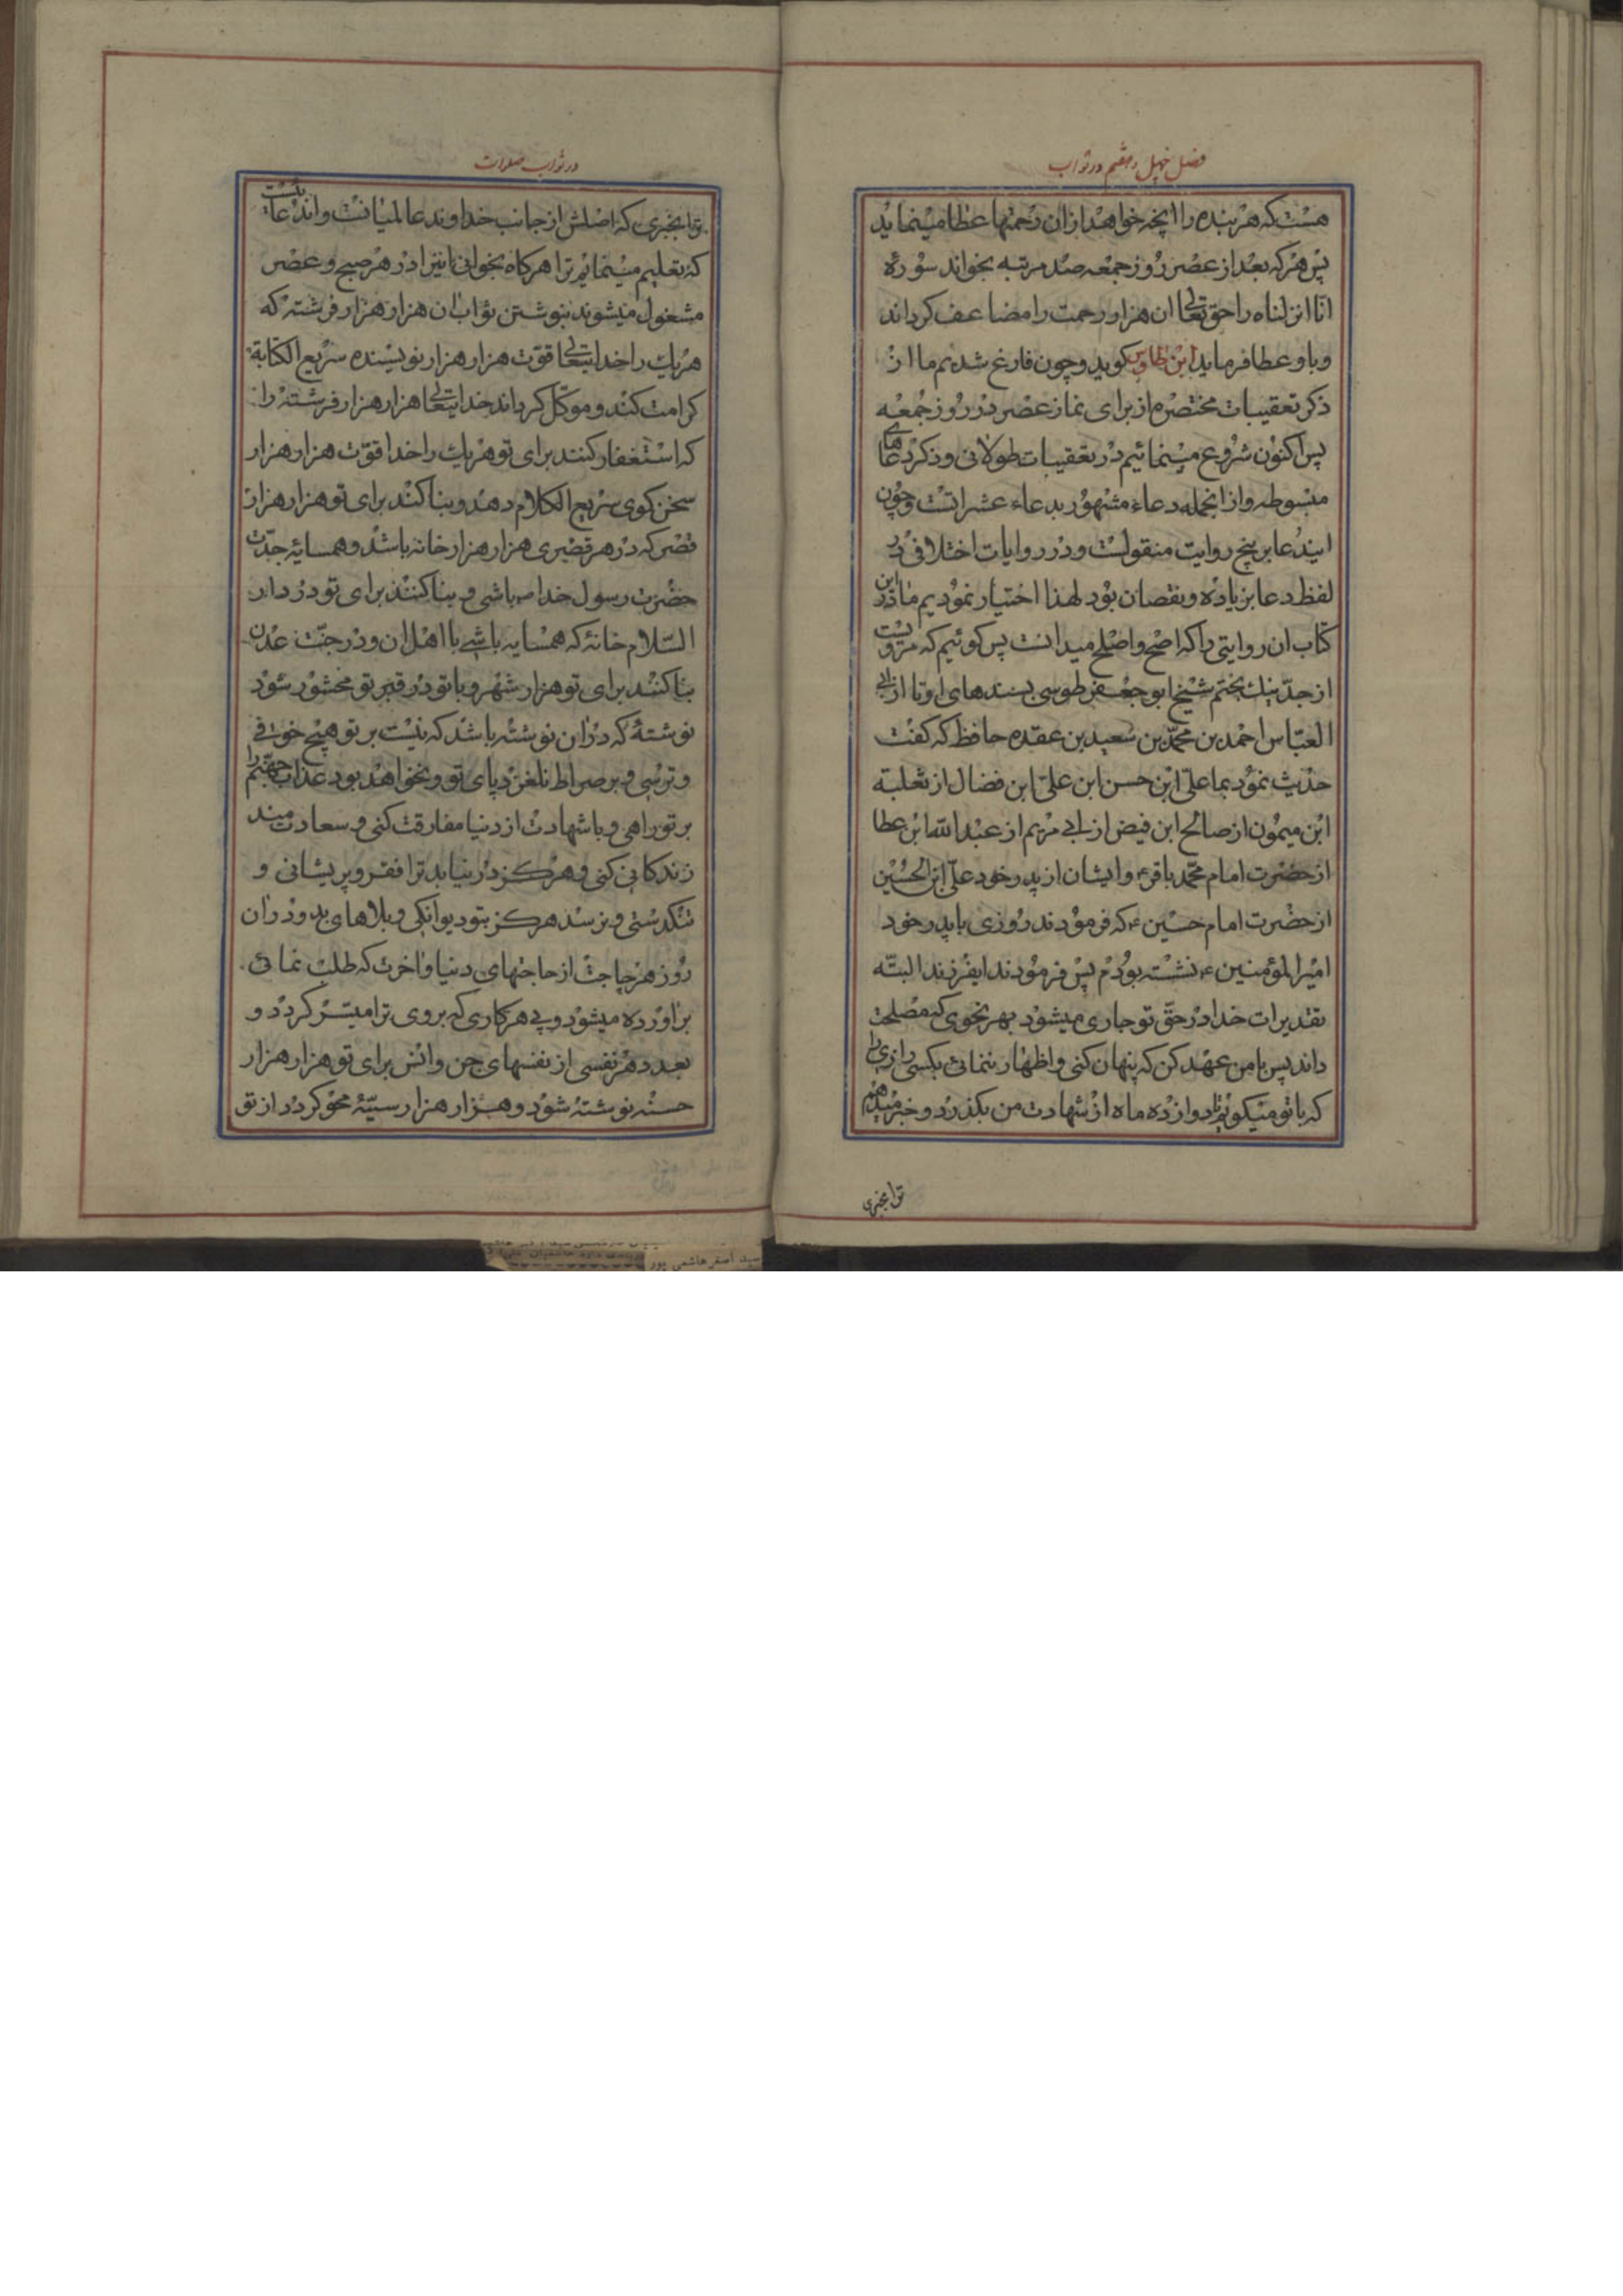 فصل چهل و هفتم در ثواب
هست که هر بنده را آنچه خواهد ازان رحمتها عطا مینماید
پس هر که بعد از عصر روز جمعه صد مرتبه بخواند سورهٔ
انا انزلناه را حق تعالی ان هزار رحمت را مضاعف کرداند
و باو عطا فرماید ابن طاوس کوید و چون فارغ شدیم ما از
ذکر تعقیبات مختصره از برای نماز عصر در روز جمعه
پس اکنون شروع مینمائیم در تعقیبات طولانی و ذکر دعاهای
مبسوطه و از انجمله دعاء مشهور بدعاء عشراتست و چون
ایندعا بر پنج روایت منقولست و در روایات اختلافی در
لفظ دعا بزیاده و نقصان بود لهذا اختیار نمودیم ما در این
کتاب ان روایتی را که اصح و اصلح میدانست پس کوئیم که مرویست
از جد نیک بختم شیخ ابو جعفر طوسی بسندهای او تا از ابی
العباس احمد بن محمد بن سعید بن عقده حافظ که کفت
حدیث نمود بما علی ابن حسن ابن علی ابن فضال از ثعلبة
ابن میمون از صالح ابن فیض از ابی مریم از عبد الله ابن عطا
از حضرت امام محمد باقر ع و ایشان از پدر خود علی ابن الحسین
از حضرت امام حسین ع که فرمودند روزی با پدر خود
امیر المؤمنین ع نشسته بودم پس فرمودند ایفرزند البته
تقدیرات خدا در حق تو جاری میشود بهر نحوی که مصلحت
داند پس با من عهد کن که پنهان کنی و اظهار ننمائی بکسی رازی را
که با تو میکویم تا دوازده ماه از شهادت من بکذرد و خبر میدهم
ترا بخبری
در ثواب صلوات
ترا بخبری که اصلش از جانب خداوند عالمیانست و اندعائیست
که تعلیم مینمایم ترا هر کاه بخوانی انرا در هر صبح و عصر
مشغول میشوند بنوشتن ثواب ان هزار هزار فرشته که
هر یک را خدایتعالی قوت هزار هزار نویسنده سریع الکتابة
کرامت کند و موکل کرداند خدایتعالی هزار هزار فرشته را
که استغفار کنند برای تو هر یک را خدا قوت هزار هزار
سخن کوی سریع الکلام دهد و بنا کنند برای تو هزار هزار
قصر که در هر قصری هزار هزار خانه باشد و همسایهٔ جدت
حضرت رسول خدا ص باشی و بنا کنند برای تو در دار
السلام خانهٔ که همسایه باشی با اهل ان و در جنت عدن
بنا کنند برای تو هزار شهر و با تو در قبر تو محشور شود
نوشتهٔ که دران نوشته باشد که نیست بر تو هیچ خوفی
و ترسی و بر صراط نلغزد پای تو و نخواهد بود عذاب جهنم را
بر تو راهی و با شهادت از دنیا مفارقت کنی و سعادتمند
زندکانی کنی و هرکز در نیابد ترا فقر و پریشانی و
تنکدستی و نرسد هرکز بتو دیوانکی و بلاهای بد و دران
روز هر حاجت از حاجتهای دنیا و اخرت که طلب نمائی
براورده میشود و پی هر کاری که بروی ترا میسر کردد و
بعدد هر نفسی از نفسهای جن و انس برای تو هزار هزار
حسنه نوشته شود و هزار هزار سیئه محو کردد از تو
سید اصغر هاشمی پور